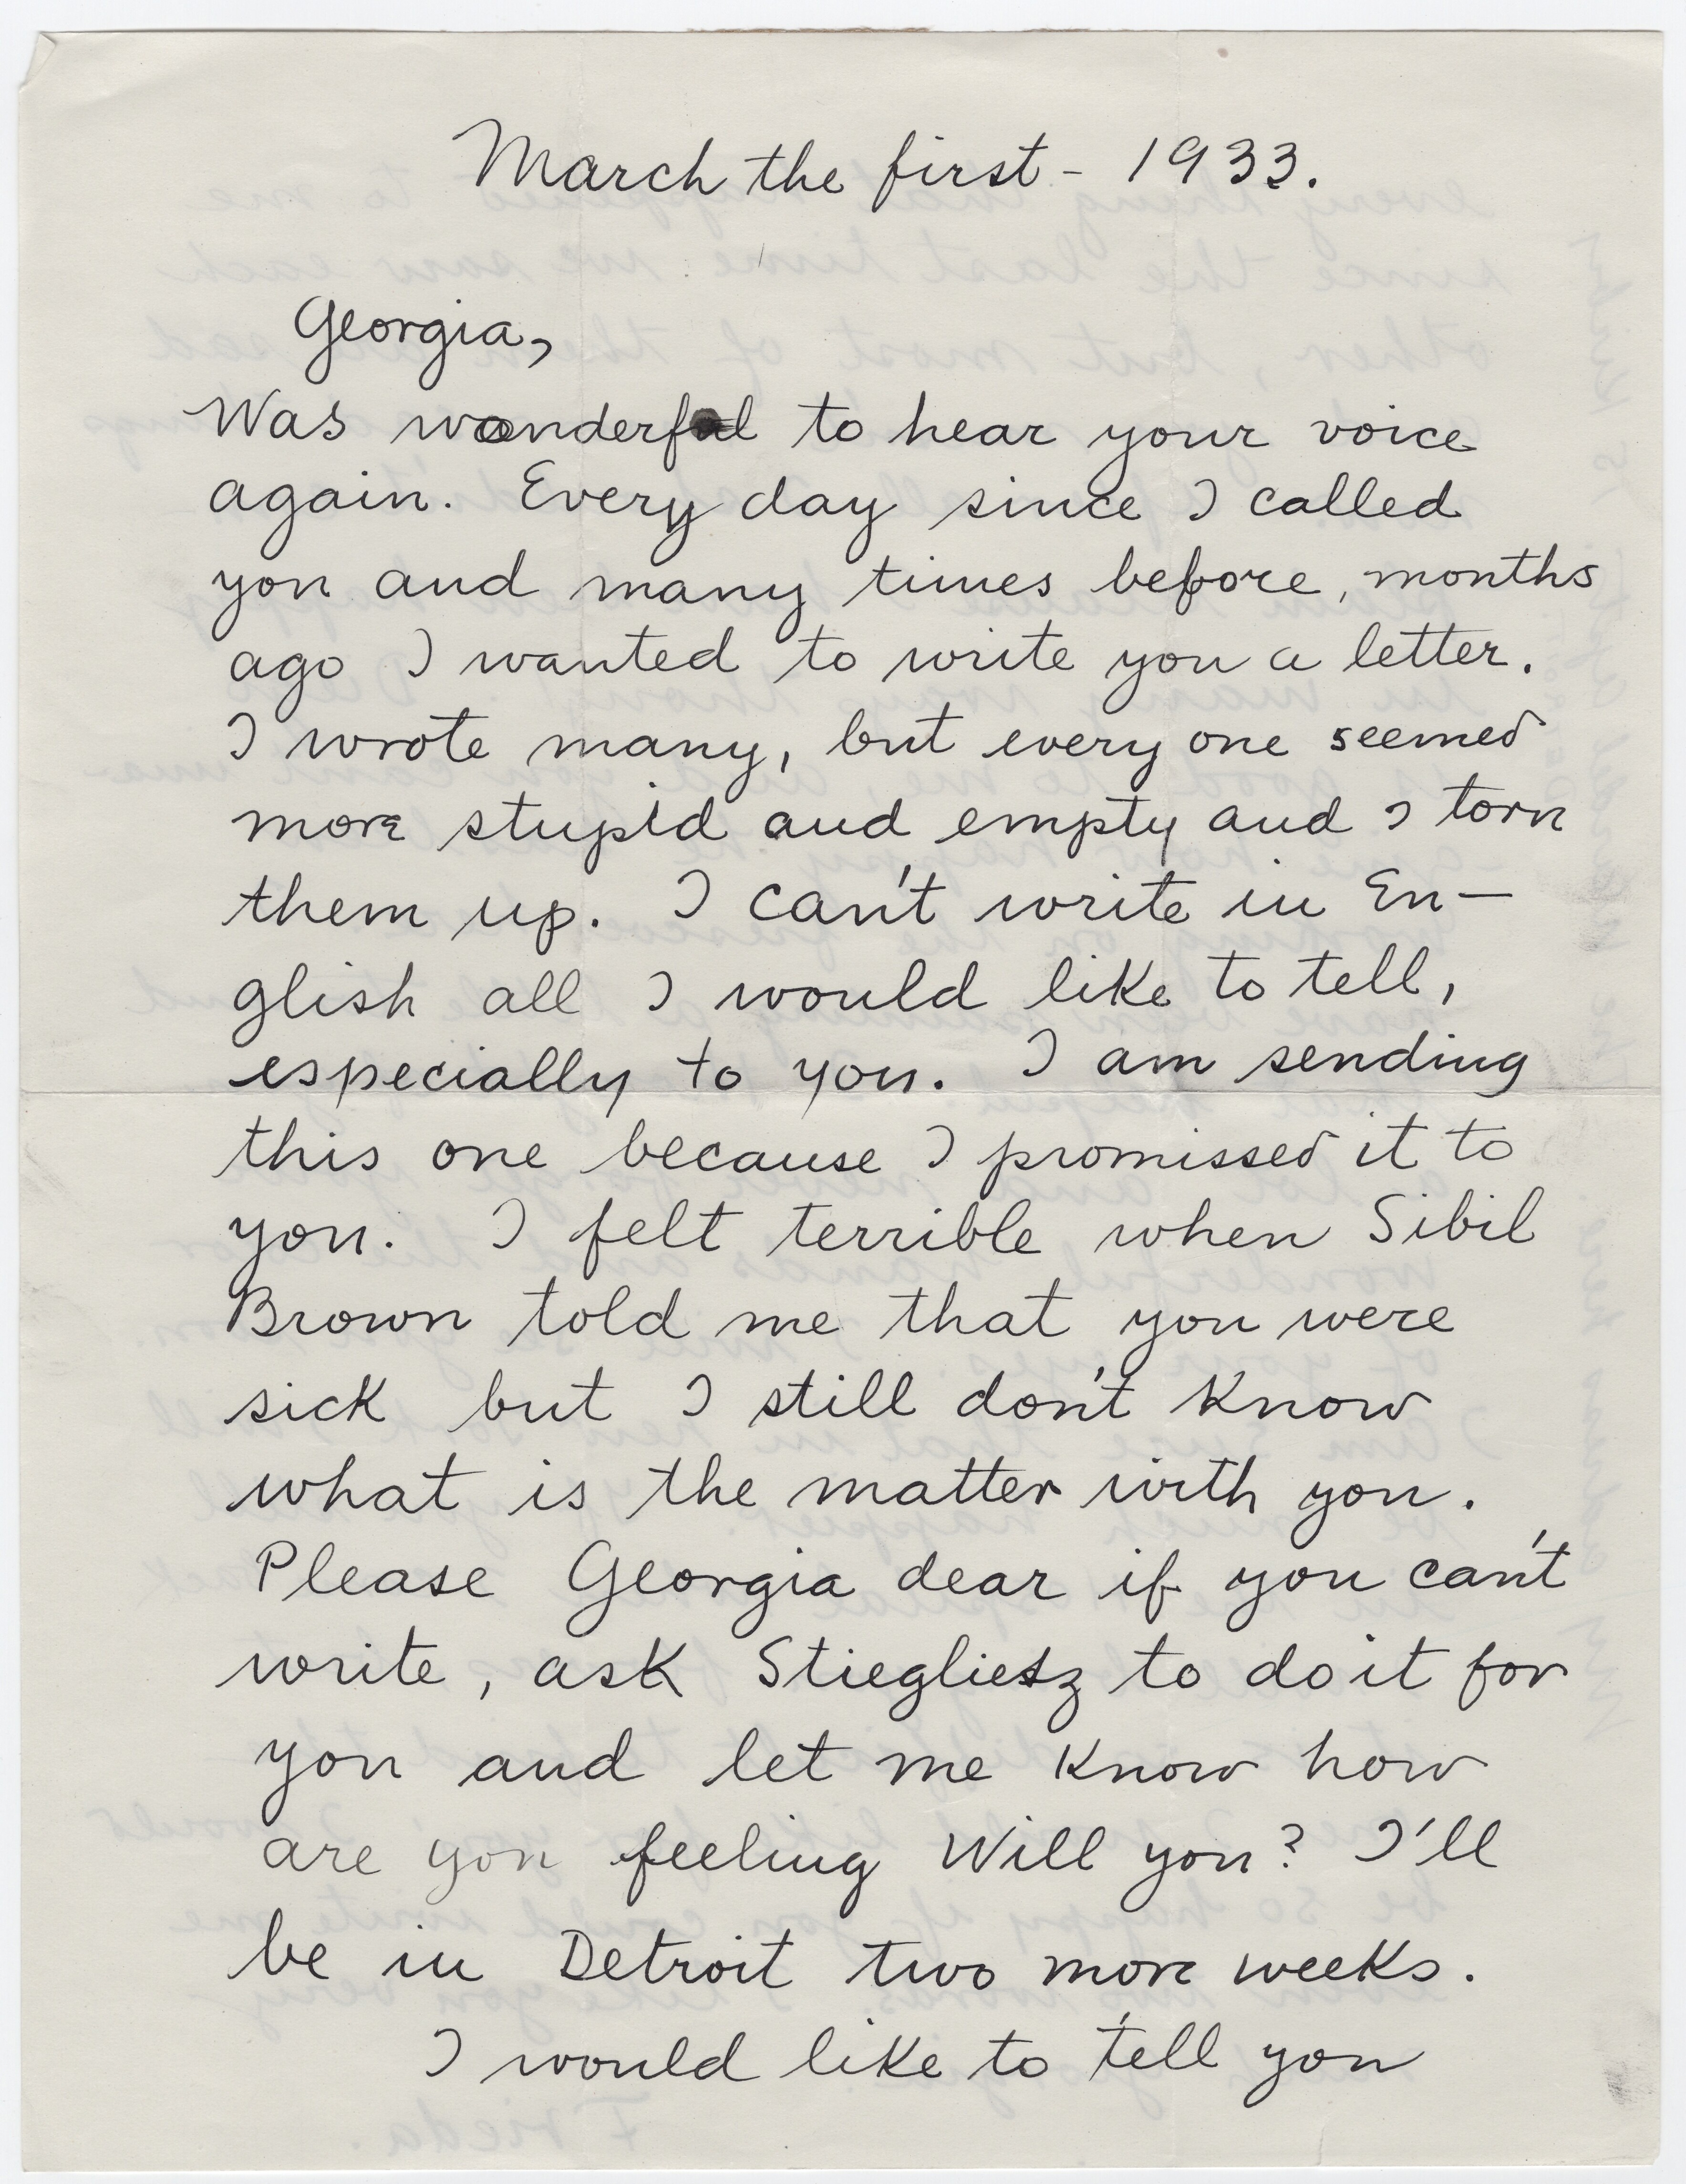 March the first - 1933.
Georgia,
Was wonderful to hear your voice
again. Every day since I called
you and many times before, months
ago I wanted to write you a letter.
I wrote many, but every one seemed
more stupid and empty and I torn
them up. I can't write in En-
glish all I would like to tell,
especially to you. I am sending
this one because I promissed it to
you. I felt terrible when Sibil
Brown told me that you were
sick but I still don't know
what is the matter with you.
Please Georgia dear if you can't
write, ask Stiegliesz to do it for
you and let me know how
are you feeling Will you? I'll
be in Detroit two more weeks.
I would like to tell you